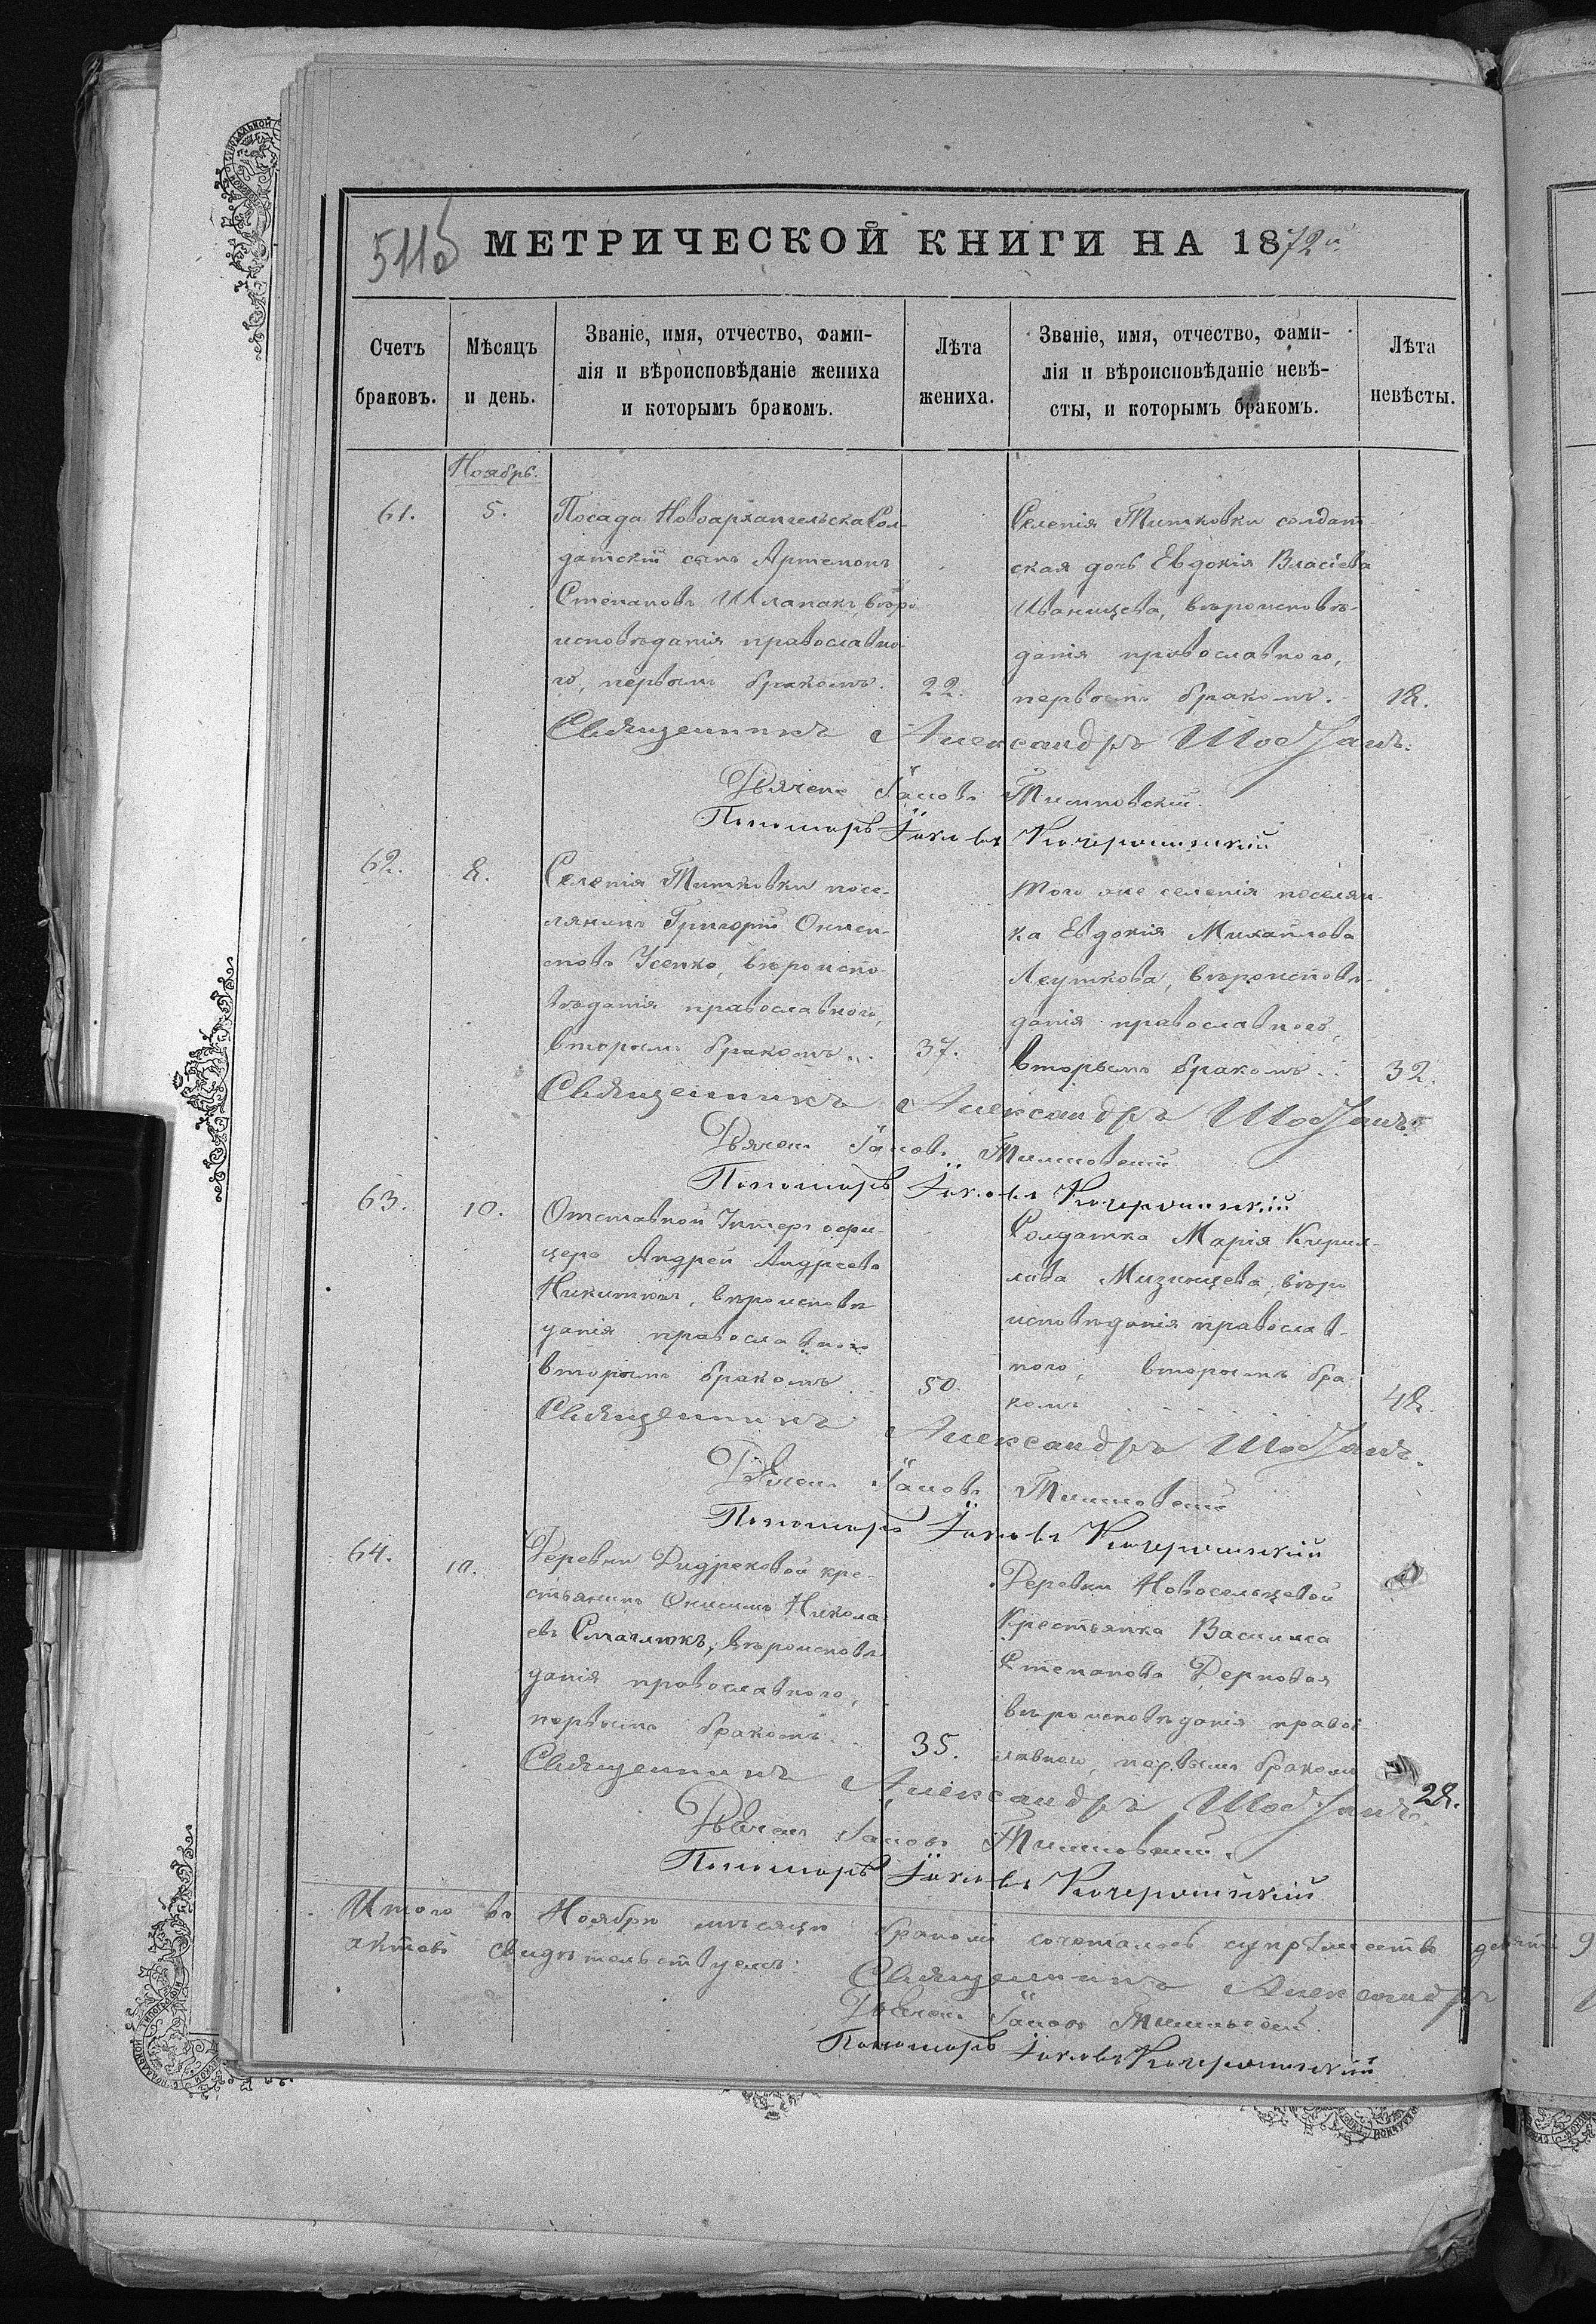 511б МЕТРИЧЕСКОЙ КНИГИ НА 1872
Счетъ браковъ.
Мѣсяцъ и день.
Званіе, имя, отчество, фами-
лія и вѣроисповѣданіе жениха
и которымъ бракомъ.
Лѣта жениха.
Званіе, имя, отчество, фами-
лія и вѣроисповѣданіе невѣ-
сты, и которымъ бракомъ.
Лѣта невѣсты.
Ноябрь.
61.
5.
Посада Новоархангельска Сол-
датскій сынъ Артемонъ
Степановъ Шлапакъ, вѣро
исповѣданія православно-
го, первымъ бракомъ.
22.
Селенія Тишковки солдат-
ская дочь Евдокія Власіева
Иванищева, вѣроисповѣ-
данія православного,
первымъ бракомъ.
18.
Священникъ Александръ
Дьячекъ Іаковъ
Пономарь Іаковъ
62.
8.
Селенія Тишковки посе-
лянинъ Григорій
Усенко, вѣроиспо-
вѣданія православного,
вторымъ бракомъ...
37.
того же селенія поселян-
ка Евдокія Михайлова
Леушкова, вѣроисповѣ-
данія православного,
вторымъ бракомъ...
32.
Священникъ Александръ
Дьячекъ Іаковъ
Пономарь Іаковъ
63.
10.
Отставной Унтеръ офи-
церъ Андрей Андреевъ
Никитюкъ, вѣроисповѣ
данія православного
вторымъ бракомъ
50.
Солдатка Марія Кирил-
лова Мизинцева, вѣро
исповѣданія православ-
ного, вторымъ бра-
комъ
48.
Священникъ Александръ
Дьячекъ Іаковъ
Пономарь Іаковъ
64.
10.
Деревни кре-
стьянинъ Онисимъ Никола-
евъ Смаглюкъ, вѣроисповѣ
данія православного,
первымъ бракомъ
35.
Деревни Новосельцевой
Крестьянка Василиса
Степанова Дерновая
вѣроисповѣданія правос
лавного, первымъ бракомъ
28.
Священникъ Александръ
Дьячекъ Іаковъ
Пономарь Іаковъ
Итого въ Ноябрѣ мѣсяцѣ бракомъ сочеталось супружествъ девять 9
актовъ свидѣтельствуемъ: Священникъ Александръ
Дьячекъ Іаковъ
Пономарь Іаковъ